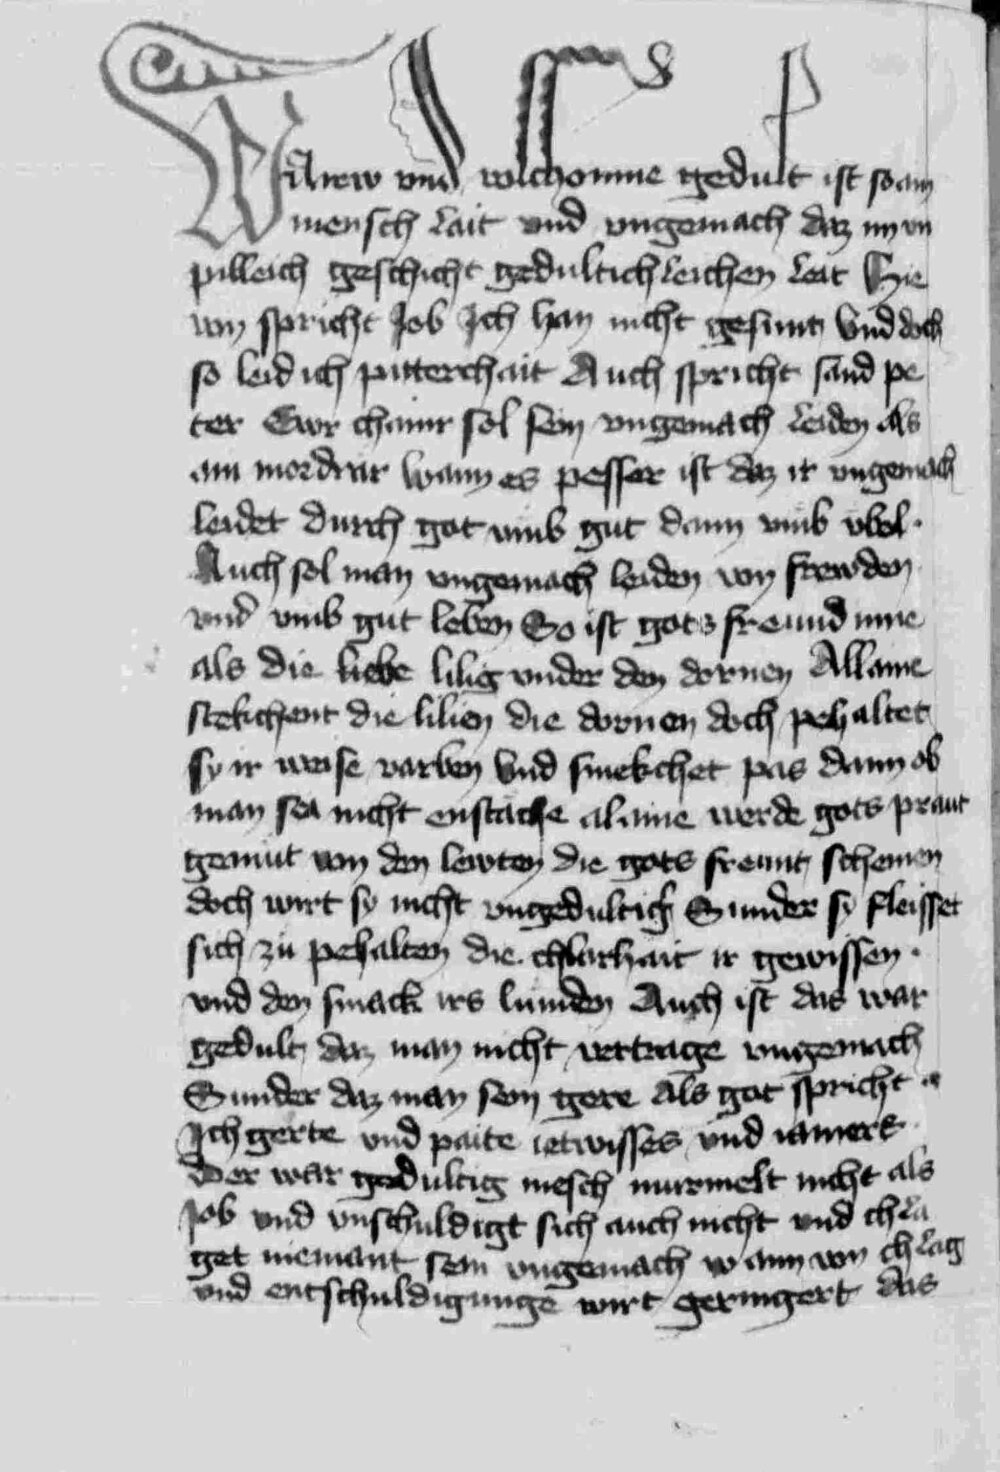 Warew vnd volchomne gedult ist so ain
mensch lait vnd vngemach daz im vn
pilleich geschicht gedultichleichen leit Hie
von spricht Job Ich han nicht gesunt Vnd doch
so leid ich pitterchait Auch spricht sand pe
ter Ewr chainr sol sein vngemach leiden als
ain mordrar wann es pesser ist daz ir vngemach
leidet durch got vmb gut dann vmb vbel.
Auch sol man vngemach leiden von frewden
vnd vmb gut leben So ist gots freund inne
als die liebe lilig vnder den dornen Allaine
stekchent die lilien die dornen doch pehaltet
sy ir weise varben Vnd smekchet pas dann ob
man sea nicht enstache alaine werde gots praut
gemut von den lewten die gots freunt scheinen
doch wirt sy nicht vngedultich Sunder sy fleisset
sich zu pehalten die chlarhait ir gewissen.
vnd den smack irs lumden Auch ist das war
gedult daz man nicht vertrage vngemach
Sunder daz man sein gere Als got spricht
Ich gerte vnd paite itwisses vnd iamers
Der war gedultig mesch murmelt nicht als
Job vnd vnschuldigt sich auch nicht vnd chla
get niemant sein vngemach wann von chlag
vnd entschuldigunge wirt geringert das